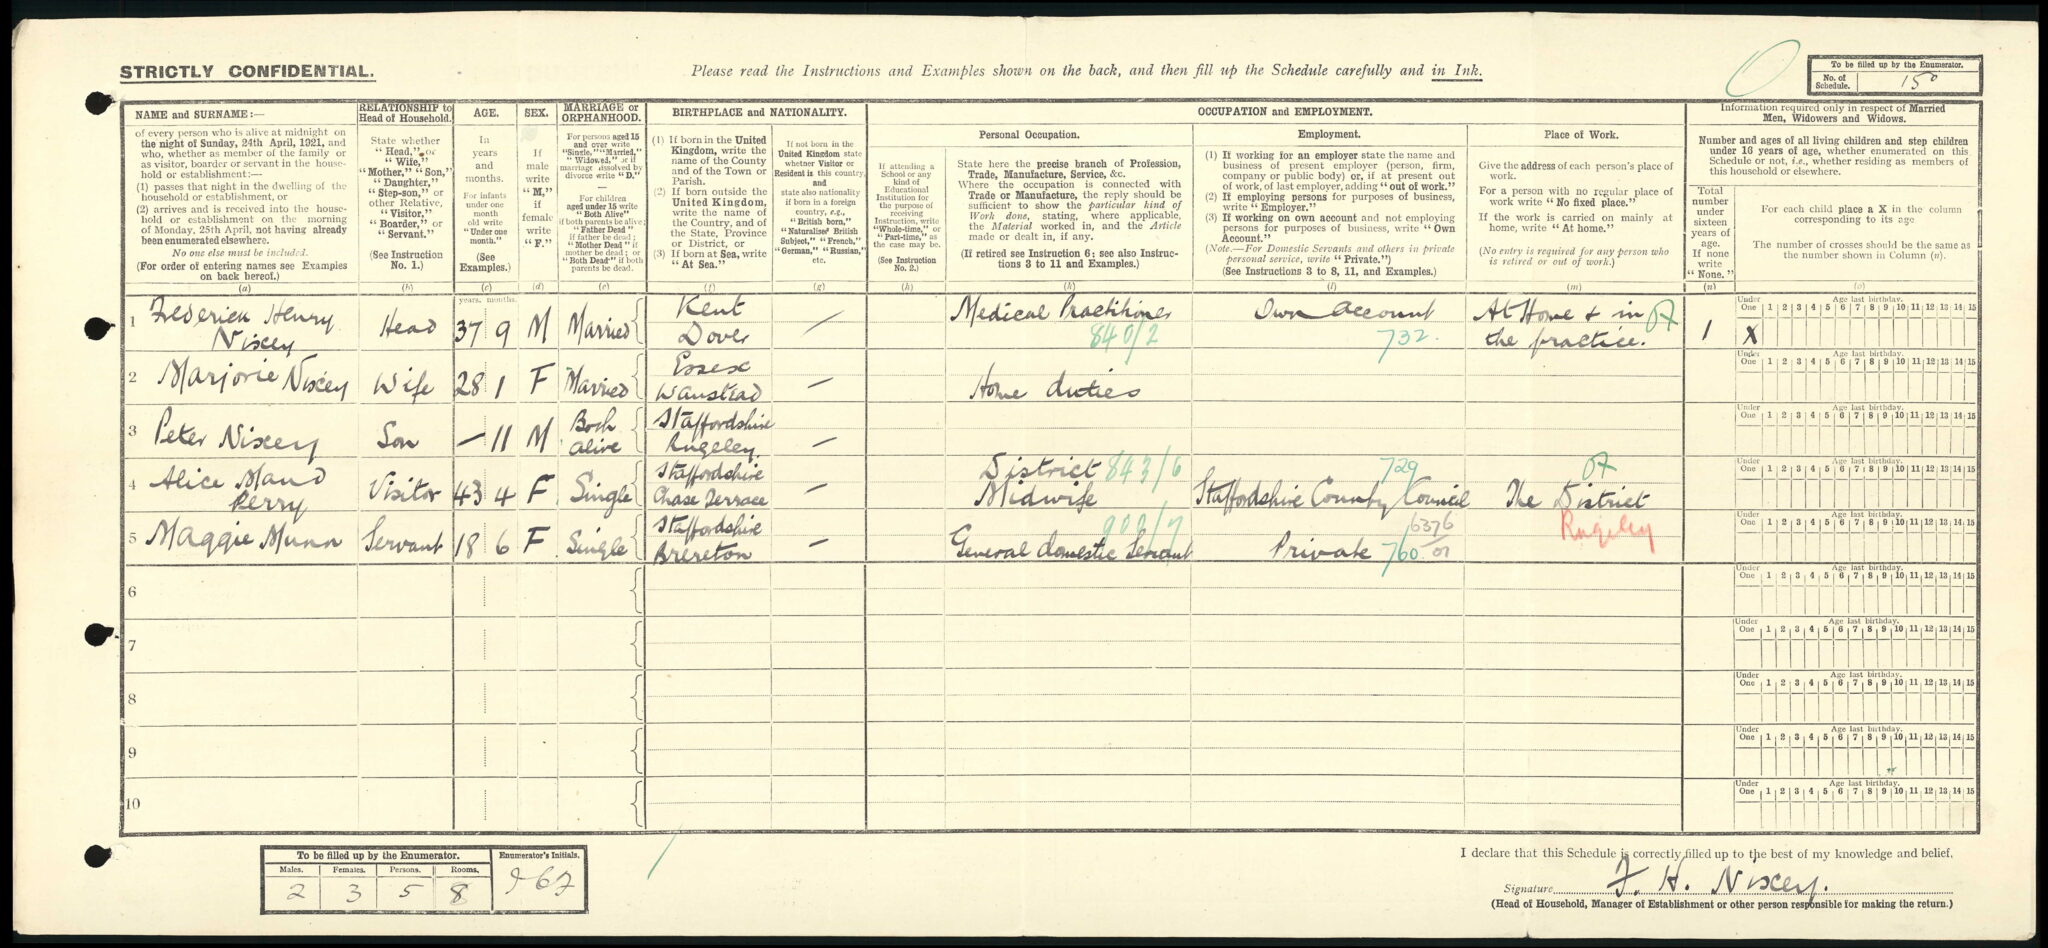 STRICTLY CONFIDENTIAL.
Please read the Instructions and Examples shown on the back, and then fill up the Schedule carefully and in Ink.
To be filled up by the Enumerator.
No. of Schedule. 150
NAME and SURNAME:—
of every person who is alive at midnight on
the night of Sunday, 24th April, 1921, and
who, whether as member of the family or
as visitor, boarder or servant in the house-
hold or establishment:—
(1) passes that night in the dwelling of the
household or establishment, or
(2) arrives and is received into the house-
hold or establishment on the morning
of Monday, 25th April, not having already
been enumerated elsewhere.
No one else must be included.
(For order of entering names see Examples
on back hereof.)
(a)
RELATIONSHIP to
Head of Household.
State whether
"Head," or
"Wife,"
"Mother," "Son,"
"Daughter,"
"Step-son," or
other Relative,
"Visitor,"
"Boarder," or
"Servant."
(See Instruction
No. 1.)
(b)
AGE.
In
years
and
months.
For infants
under one
month
old write
"Under one
month."
(See
Examples.)
(c)
SEX.
If
male
write
"M,"
if
female
write
"F."
(d)
MARRIAGE or
ORPHANHOOD.
For persons aged 15
and over write
"Single," "Married,"
"Widowed," or if
marriage dissolved by
divorce write "D."
—
For children
aged under 15 write
"Both Alive"
if both parents be alive;
"Father Dead"
if father be dead;
"Mother Dead" if
mother be dead; or
"Both Dead" if both
parents be dead.
(e)
BIRTHPLACE and NATIONALITY.
(1) If born in the United
Kingdom, write the
name of the County
and of the Town or
Parish.
(2) If born outside the
United Kingdom,
write the name of
the Country, and of
the State, Province
or District, or
(3) If born at Sea, write
"At Sea."
(f)
If not born in the
United Kingdom state
whether Visitor or
Resident in this country,
and
state also nationality
if born in a foreign
country, e.g.,
"British born,"
"Naturalised British
Subject," "French,"
"German," "Russian,"
etc.
(g)
OCCUPATION and EMPLOYMENT.
If attending a
School or any
kind of
Educational
Institution for
the purpose of
receiving
Instruction, write
"Whole-time," or
"Part-time," as
the case may be.
(See Instruction
No. 2.)
(h)
Personal Occupation.
State here the precise branch of Profession,
Trade, Manufacture, Service, &c.
Where the occupation is connected with
Trade or Manufacture, the reply should be
sufficient to show the particular kind of
Work done, stating, where applicable,
the Material worked in, and the Article
made or dealt in, if any.
(If retired see Instruction 6; see also Instruc-
tions 3 to 11 and Examples.)
(k)
Employment.
(1) If working for an employer state the name and
business of present employer (person, firm,
company or public body) or, if at present out
of work, of last employer, adding "out of work."
(2) If employing persons for purposes of business,
write "Employer."
(3) If working on own account and not employing
persons for purposes of business, write "Own
Account."
(Note.—For Domestic Servants and others in private
personal service, write "Private.")
(See Instructions 3 to 8, 11, and Examples.)
(l)
Place of Work.
Give the address of each person's place of
work.
For a person with no regular place of
work write "No fixed place."
If the work is carried on mainly at
home, write "At home."
(No entry is required for any person who
is retired or out of work.)
(m)
Information required only in respect of Married
Men, Widowers and Widows.
Number and ages of all living children and step children
under 16 years of age, whether enumerated on this
Schedule or not, i.e., whether residing as members of
this household or elsewhere.
Total
number
under
sixteen
years of
age.
If none
write
"None."
(n)
For each child place a X in the column
corresponding to its age
The number of crosses should be the same as
the number shown in Column (n).
(o)
years. months.
Under One Age last birthday. 1 2 3 4 5 6 7 8 9 10 11 12 13 14 15
1 Frederick Henry Nixey Head 37 9 M Married Kent Dover — Medical Practitioner 840/2 Own account 732 At Home & in the practice. 1 X
Under One Age last birthday. 1 2 3 4 5 6 7 8 9 10 11 12 13 14 15
2 Marjorie Nixey Wife 28 1 F Married Essex Wanstead — Home duties
Under One Age last birthday. 1 2 3 4 5 6 7 8 9 10 11 12 13 14 15
3 Peter Nixey Son — 11 M Both alive Staffordshire Rugeley. —
Under One Age last birthday. 1 2 3 4 5 6 7 8 9 10 11 12 13 14 15
4 Alice Maud Perry Visitor 43 4 F Single Staffordshire Chase Terrace — District Midwife 843/6 729 Staffordshire County Council The District
Under One Age last birthday. 1 2 3 4 5 6 7 8 9 10 11 12 13 14 15
5 Maggie Munn Servant 18 6 F Single Staffordshire Brereton — General domestic Servant 900/7 Private 760 6376/01 Rugeley
Under One Age last birthday. 1 2 3 4 5 6 7 8 9 10 11 12 13 14 15
6
Under One Age last birthday. 1 2 3 4 5 6 7 8 9 10 11 12 13 14 15
7
Under One Age last birthday. 1 2 3 4 5 6 7 8 9 10 11 12 13 14 15
8
Under One Age last birthday. 1 2 3 4 5 6 7 8 9 10 11 12 13 14 15
9
Under One Age last birthday. 1 2 3 4 5 6 7 8 9 10 11 12 13 14 15
10
To be filled up by the Enumerator.
Males. Females. Persons. Rooms.
2 3 5 8
Enumerator's Initials.
I declare that this Schedule is correctly filled up to the best of my knowledge and belief.
Signature F. H. Nixey.
(Head of Household, Manager of Establishment or other person responsible for making the return.)